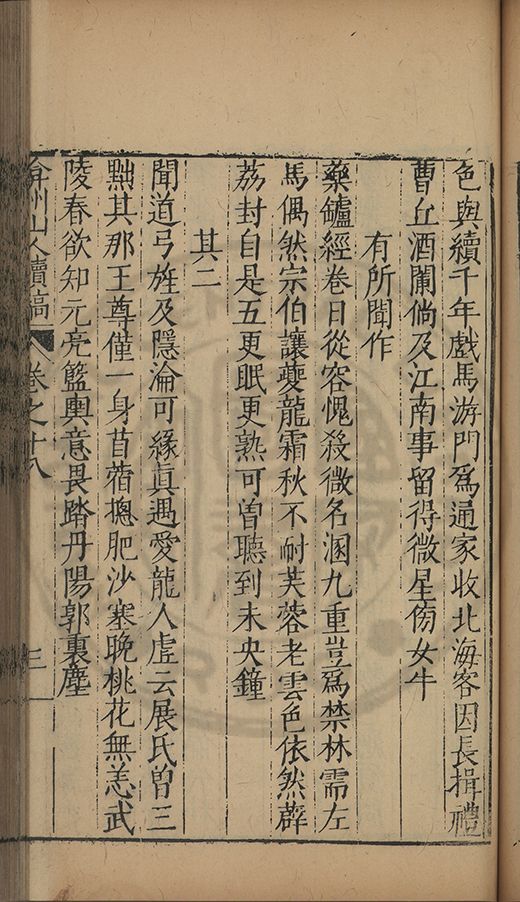 色與續千年戲馬游門爲通家收北海客因長揖禮
曹丘酒闌倘及江南事留得微星傍女牛
有所聞作
藥鑪經卷日從容愧殺微名溷九重豈爲禁林需左
馬偶然宗伯讓夔龍霜秋不耐芙蓉老雲色依然薜
荔封自是五更眠更熟可曾聽到未央鐘
其二
聞道弓旌及隱淪可緣眞遇愛龍人虛云展氏曾三
黜其那王尊僅一身苜蓿摠肥沙塞晚桃花無恙武
陵春欲知元亮籃輿意畏踏丹陽郭裏塵
弇州山人續稿 卷之十八 三